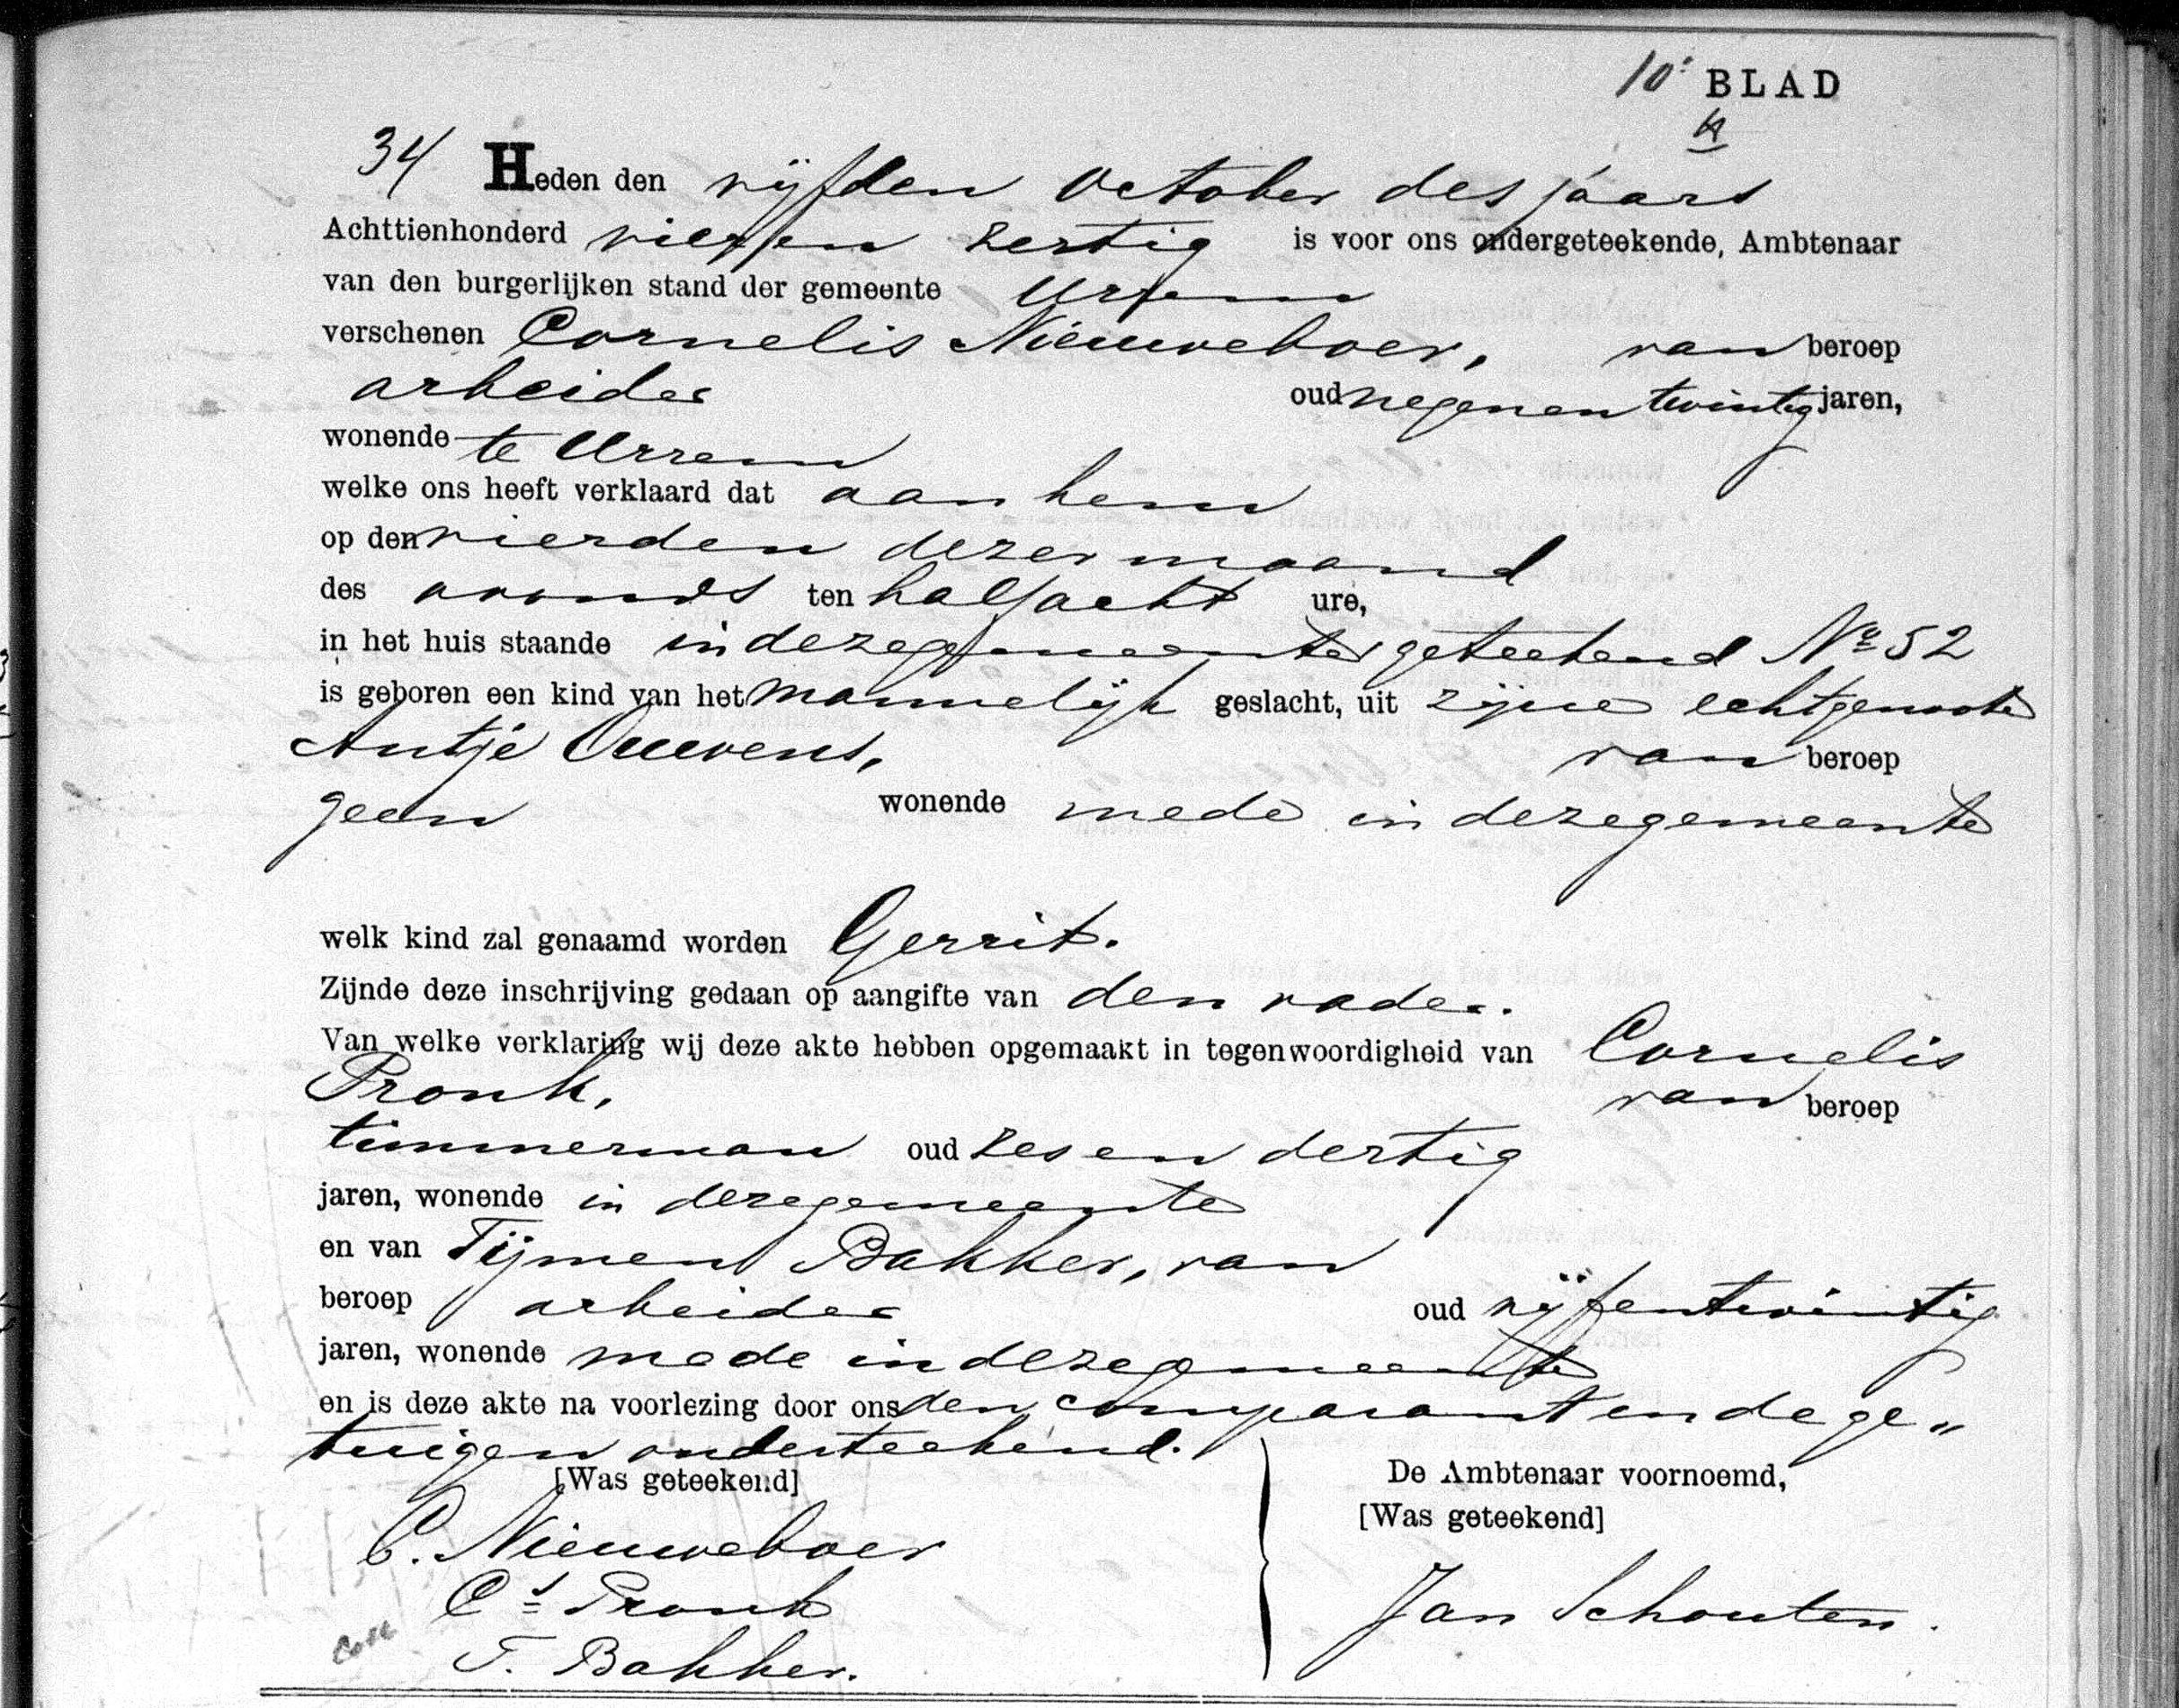 10e BLAD
34 Heden den vijfden October des jaars
Achttienhonderd vier en zestig is voor ons ondergeteekende, Ambtenaar
van den burgerlijken stand der gemeente Ursem
verschenen Cornelis Nieuweboer, van beroep
arbeider oud negen en twintig jaren,
wonende te Ursem
welke ons heeft verklaard dat aan hem
op den vierden dezer maand
des avonds ten half acht ure,
in het huis staande in deze gemeente geteekend No 52
is geboren een kind van het mannelijk geslacht, uit zijne echtgenoote
Antje Ouwens, van beroep
geen wonende mede in deze gemeente
welk kind zal genaamd worden Gerrit.
Zijnde deze inschrijving gedaan op aangifte van den vader.
Van welke verklaring wij deze akte hebben opgemaakt in tegenwoordigheid van Cornelis
Pronk, van beroep
timmerman oud zes en dertig
jaren, wonende in deze gemeente
en van Tijmen Bakker, van
beroep arbeider oud vijf en twintig
jaren, wonende mede in deze gemeente
en is deze akte na voorlezing door ons den comparant en de ge„
tuigen onderteekend.
[Was geteekend] De Ambtenaar voornoemd,
[Was geteekend]
C. Nieuweboer
Cs Pronk Jan Schouten.
T. Bakker.